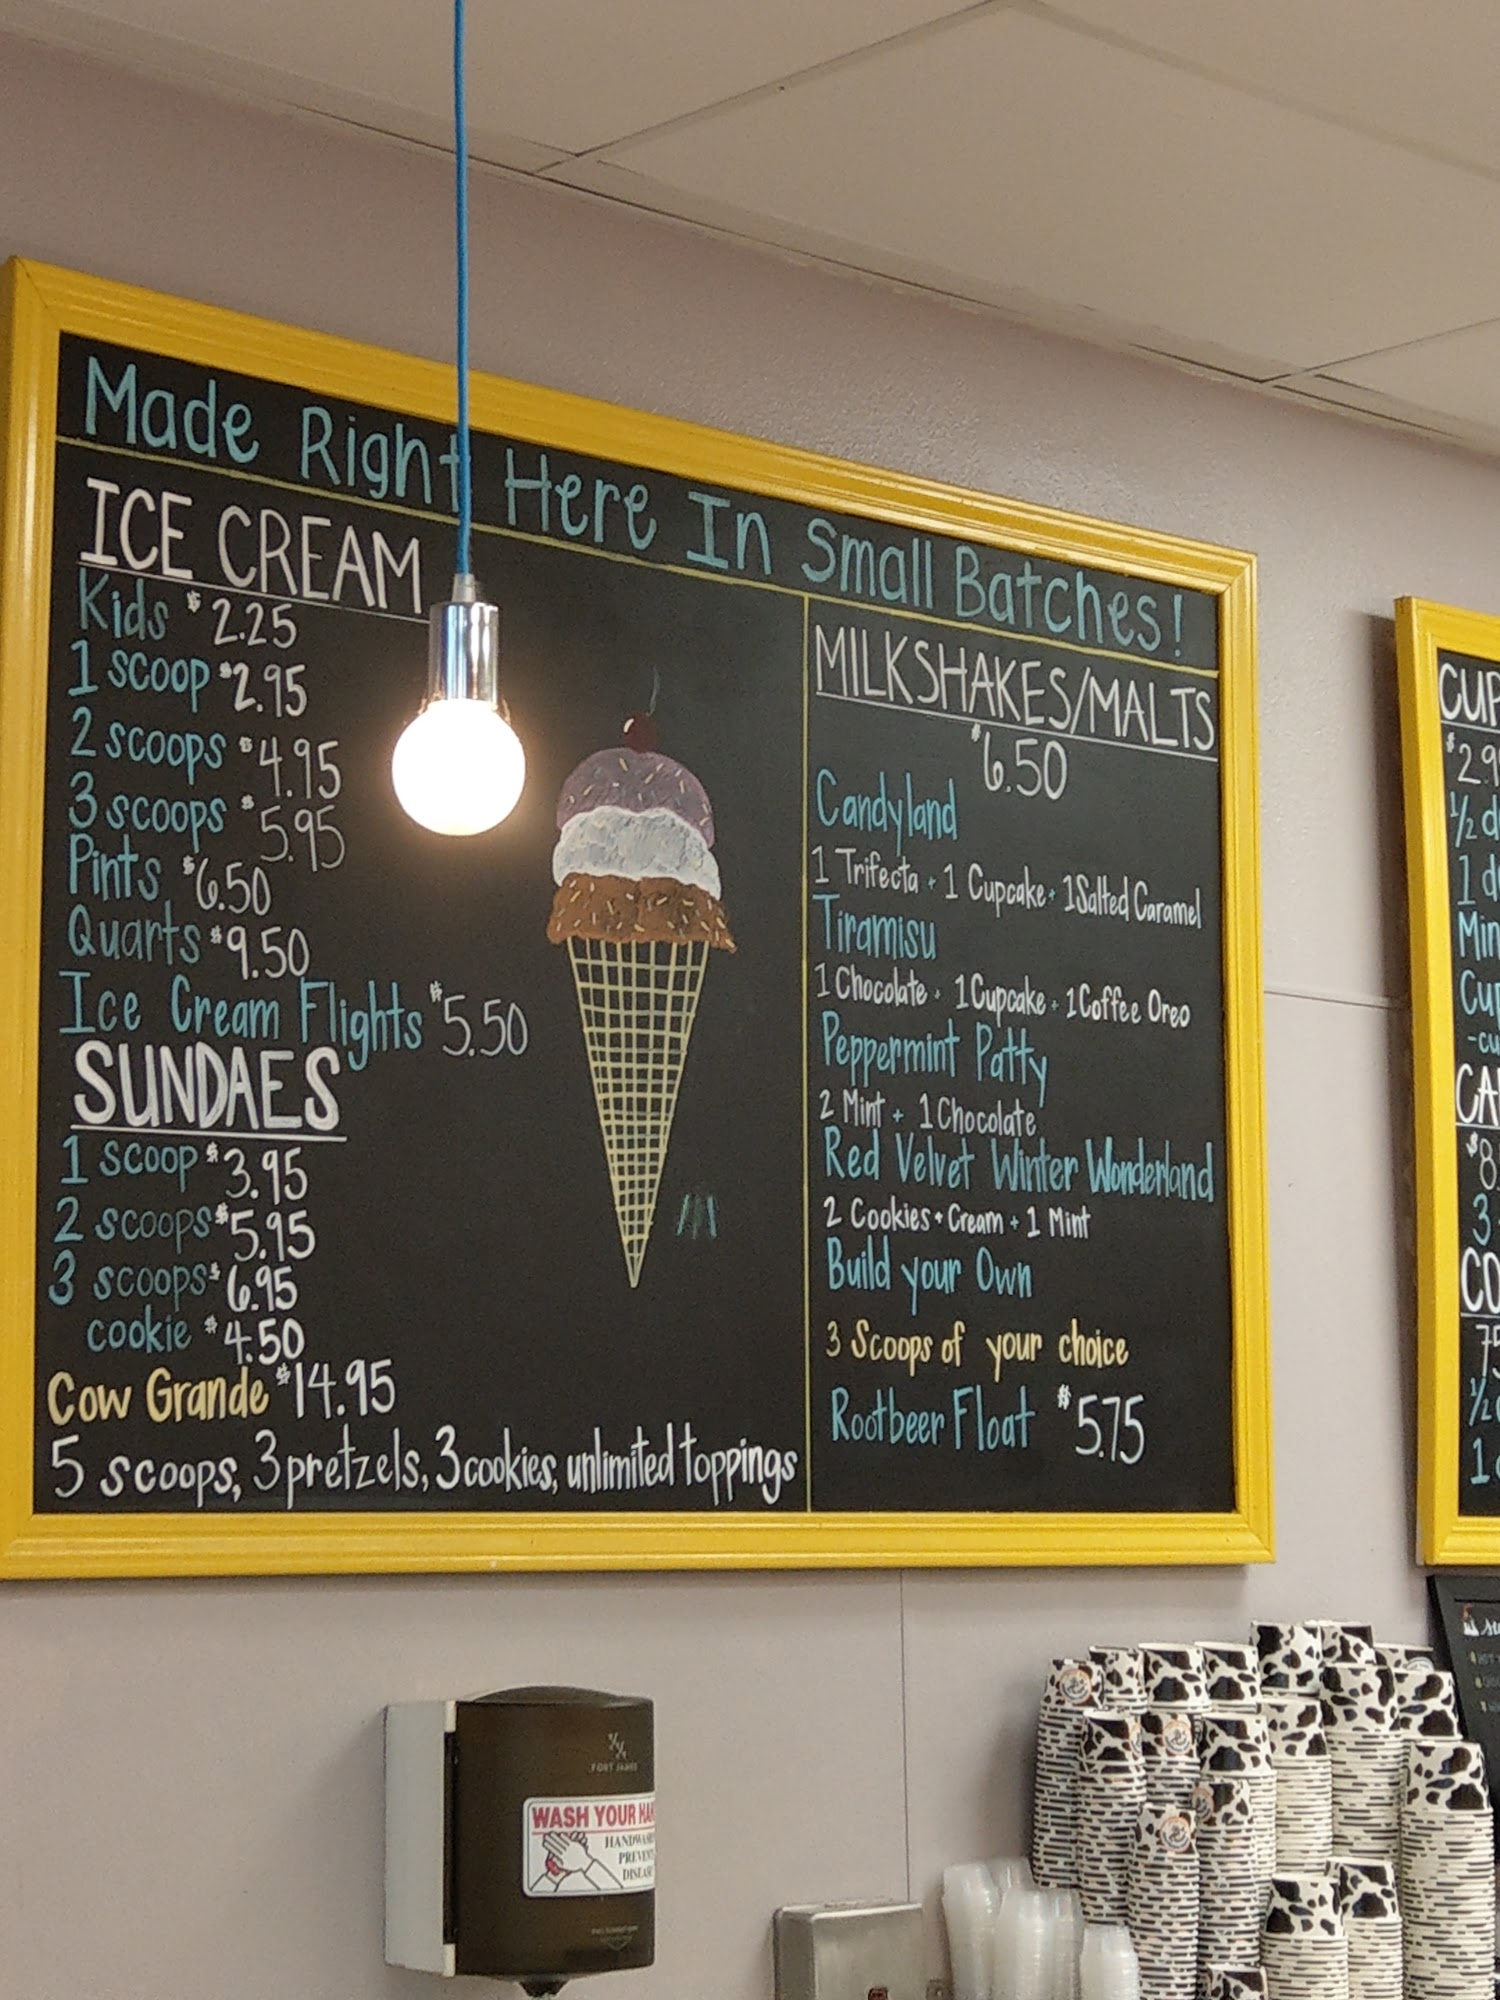 Made Right Here In Small Batches!
ICE CREAM
Kids $2.25
1 scoop $2.95
2 scoops $4.95
3 scoops $5.95
Pints $6.50
Quarts $9.50
Ice Cream Flights $5.50
SUNDAES
1 scoop $3.95
2 scoops $5.95
3 scoops $6.95
cookie $4.50
Cow Grande $14.95
5 scoops, 3 pretzels, 3 cookies, unlimited toppings
MILKSHAKES/MALTS
$6.50
Candyland
1 Trifecta + 1 Cupcake + 1 Salted Caramel
Tiramisu
1 Chocolate + 1 Cupcake + 1 Coffee Oreo
Peppermint Patty
2 Mint + 1 Chocolate
Red Velvet Winter Wonderland
2 Cookies + Cream + 1 Mint
Build your Own
3 Scoops of your choice
Rootbeer Float $5.75
CUP
$2.9
1/2 d
1 d
Min
Cup
-cu
CA
$8.
3
CO
75
1/2
1
FORT JAMES
WASH YOUR HAN
HANDWASH
PREVENT
DISEASE